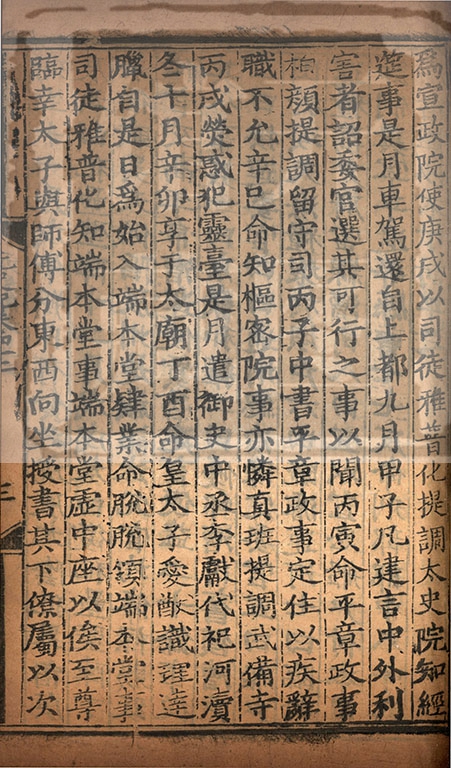 爲宣政院使庚戌以司徒雅普化提調太史院知經
筵事是月車駕還自上都九月甲子凡建言中外利
害者詔委官選其可行之事以聞丙寅命平章政事
柏顔提調留守司丙子中書平章政事定住以疾辭
職不允辛巳命知樞密院事亦憐真班提調武備寺
丙戌熒惑犯靈臺是月遣御史中丞李獻代祀河瀆
冬十月辛卯享于太廟丁酉命皇太子愛猷識理達
臘自是日爲始入端本堂肄業命脫脫領端本堂事
司徒雅普化知端本堂事端本堂虛中座以俟至尊
臨幸太子與師傅分東西向坐授書其下僚屬以次